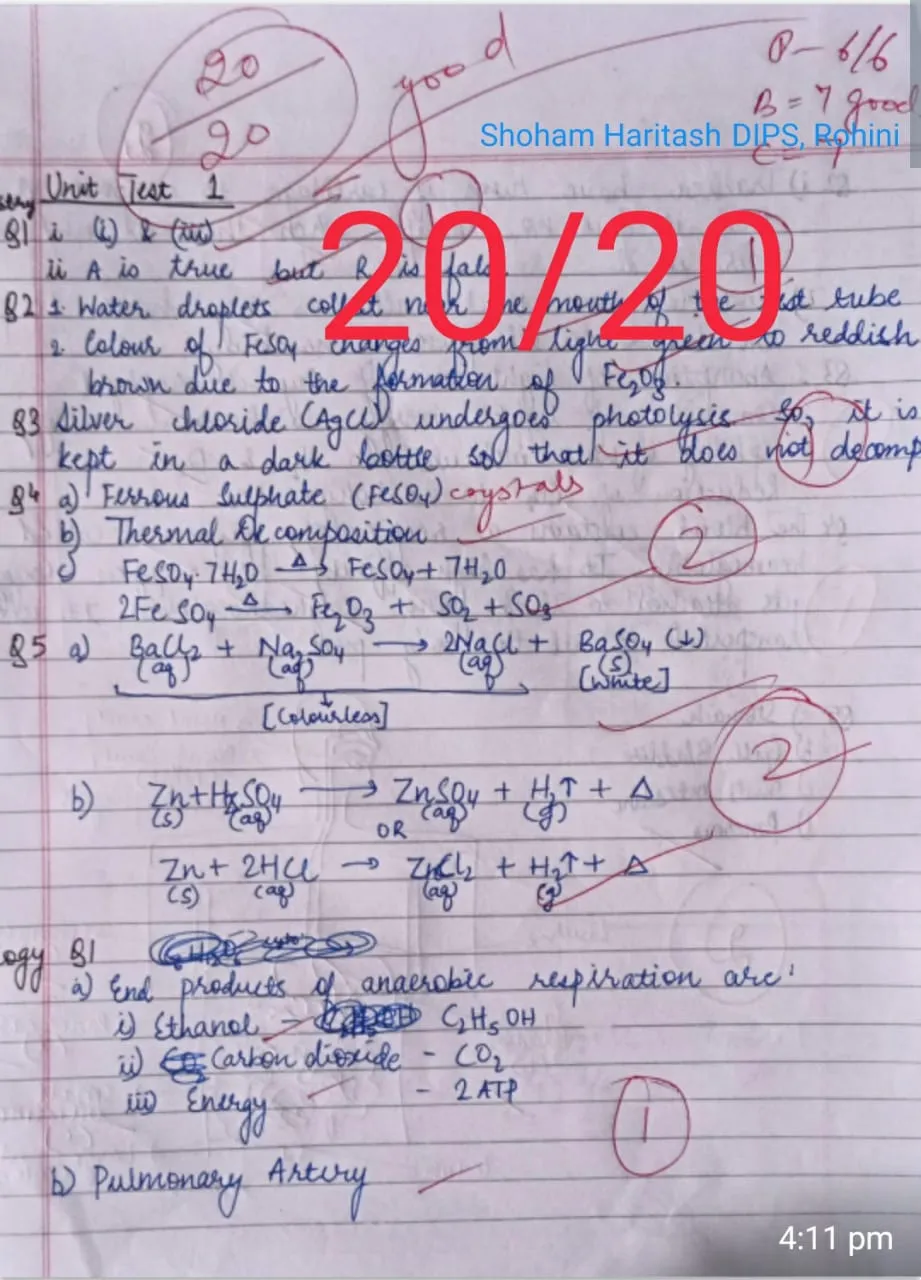 20
20
good
P - 6/6
B = 7 good
Shoham Haritash DIPS, Rohini
C = 7
Unit Test 1
stry Q1 i (i) & (iii)
1
20/20
1
ii A is true but R is false.
Q2 1. Water droplets collect near the mouth of the test tube
2. Colour of FeSO4 changes from light green to reddish
brown due to the formation of Fe2O3.
Q3 Silver chloride (AgCl) undergoes photolysis. So, it is
kept in a dark bottle so that it does not decomp
Q4 a) Ferrous Sulphate (FeSO4) crystals
b) Thermal Decomposition
2
c) FeSO4.7H2O Δ→ FeSO4 + 7H2O
2FeSO4 Δ→ Fe2O3 + SO2 + SO3
Q5 a) BaCl2 + Na2SO4 → 2NaCl + BaSO4 (↓)
(aq) (aq) (aq) (s)
[White]
[Colourless]
2
b) Zn + H2SO4 → ZnSO4 + H2↑ + Δ
(s) (aq) (aq) (g)
OR
Zn + 2HCl → ZnCl2 + H2↑ + Δ
(s) (aq) (aq) (g)
ogy Q1
a) End products of anaerobic respiration are:
i) Ethanol - C2H5OH
ii) Carbon dioxide - CO2
iii) Energy - 2 ATP
1
b) Pulmonary Artery
4:11 pm